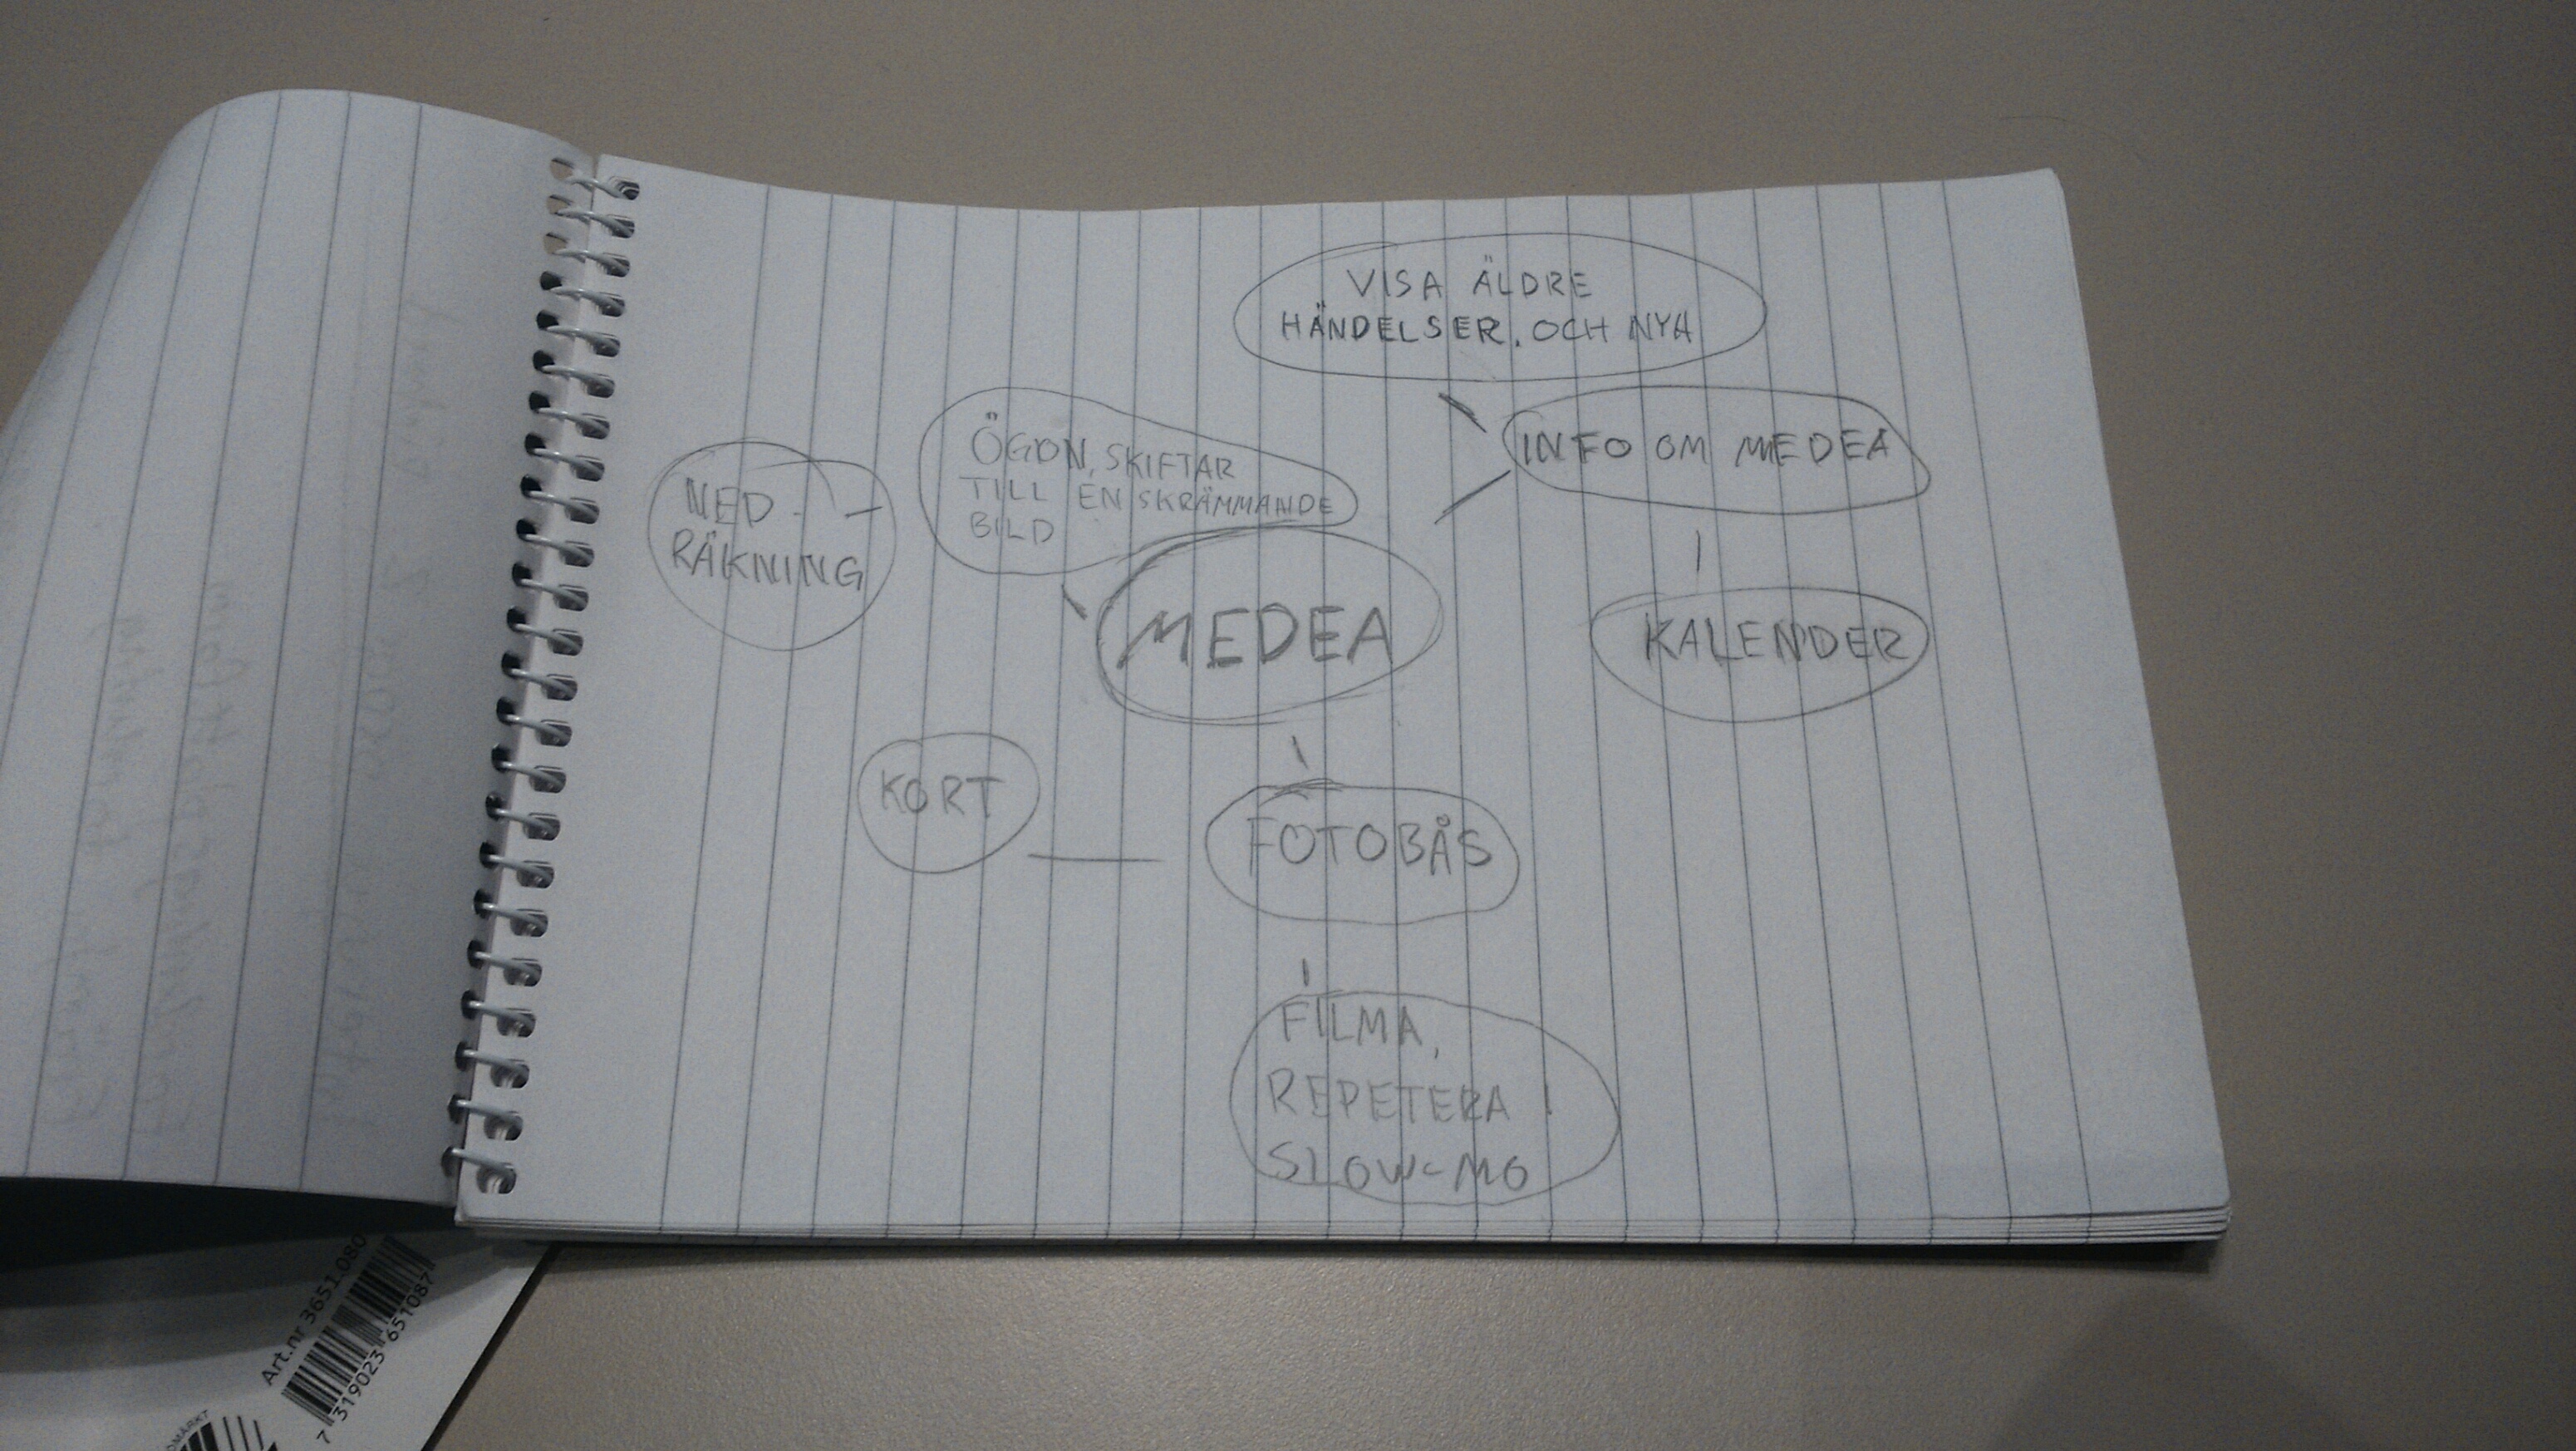 VISA ÄLDRE
HÄNDELSER. OCH NYA
INFO OM MEDEA
ÖGON, SKIFTAR
TILL EN SKRÄMMANDE
BILD
NED-
RÄKNING
MEDEA
KALENDER
KORT
FOTOBÅS
FILMA,
REPETERA
SLOW-MO
Art.nr 3651.080
7 319023 651087